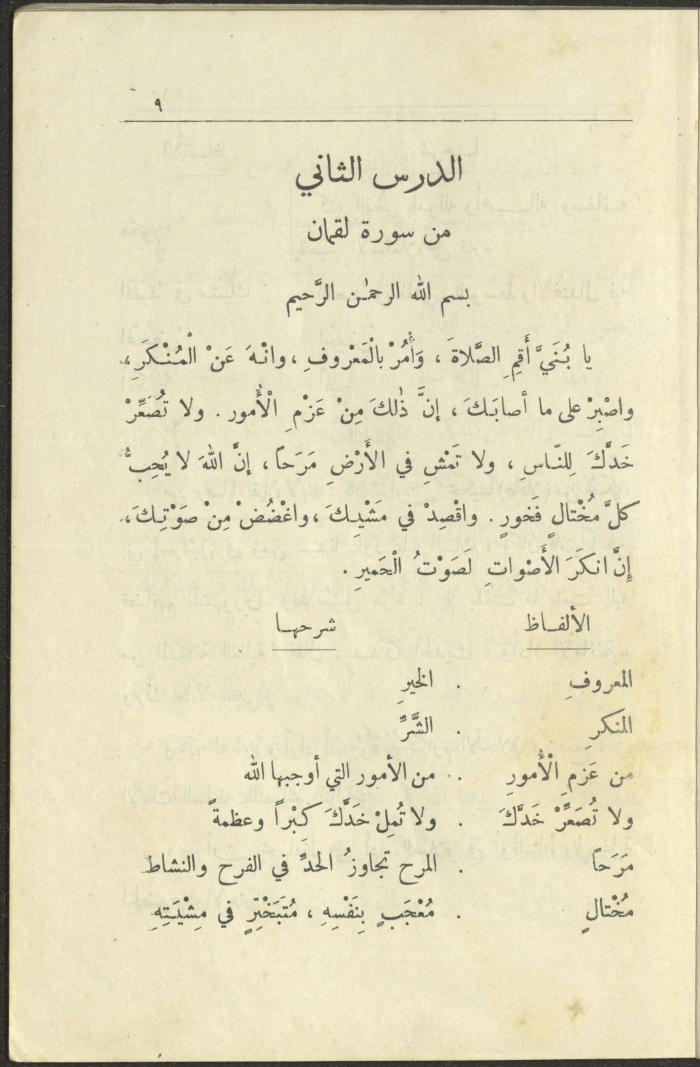 ٩
الدرس الثاني
من سورة لقمان
بسم الله الرحمٰن الرَّحيم
يا بُنَيَّ أَقِمِ الصَّلاةَ ، وَأْمُرْ بالْمَعْروفِ ، وانْهَ عَنْ الْمُنْكَرِ ،
واصْبِرْ على ما أصابَكَ ، إنَّ ذٰلكَ مِنْ عَزْمِ الْأُمور . ولا تُصَعِّرْ
خَدَّكَ لِلنّاسِ ، ولا تَمْشِ في الأَرْضِ مَرَحاً ، إنَّ اللهَ لا يُحِبُّ
كلَّ مُخْتالٍ فَخورٍ . واقْصِدْ في مَشْيِكَ ، واغْضُضْ مِنْ صَوْتِكَ ،
إنَّ انكَرَ الأَصْواتِ لَصَوْتُ الْحَميرِ .
الألفاظ شرحها
المعروفِ . الخيرِ
المنكرِ . الشَّرِّ
من عَزمِ الْأُمورِ . من الأمور التي أوجبها الله
ولا تُصَعِّرْ خَدَّكَ . ولا تُمِلْ خَدَّكَ كِبْراً وعظمةً
مَرَحاً . المرح تجاوزُ الحدِّ في الفرح والنشاط
مُخْتالٍ . مُعْجَبٍ بِنَفْسِهِ ، مُتَبَخْتِرٍ في مِشْيَتِهِ